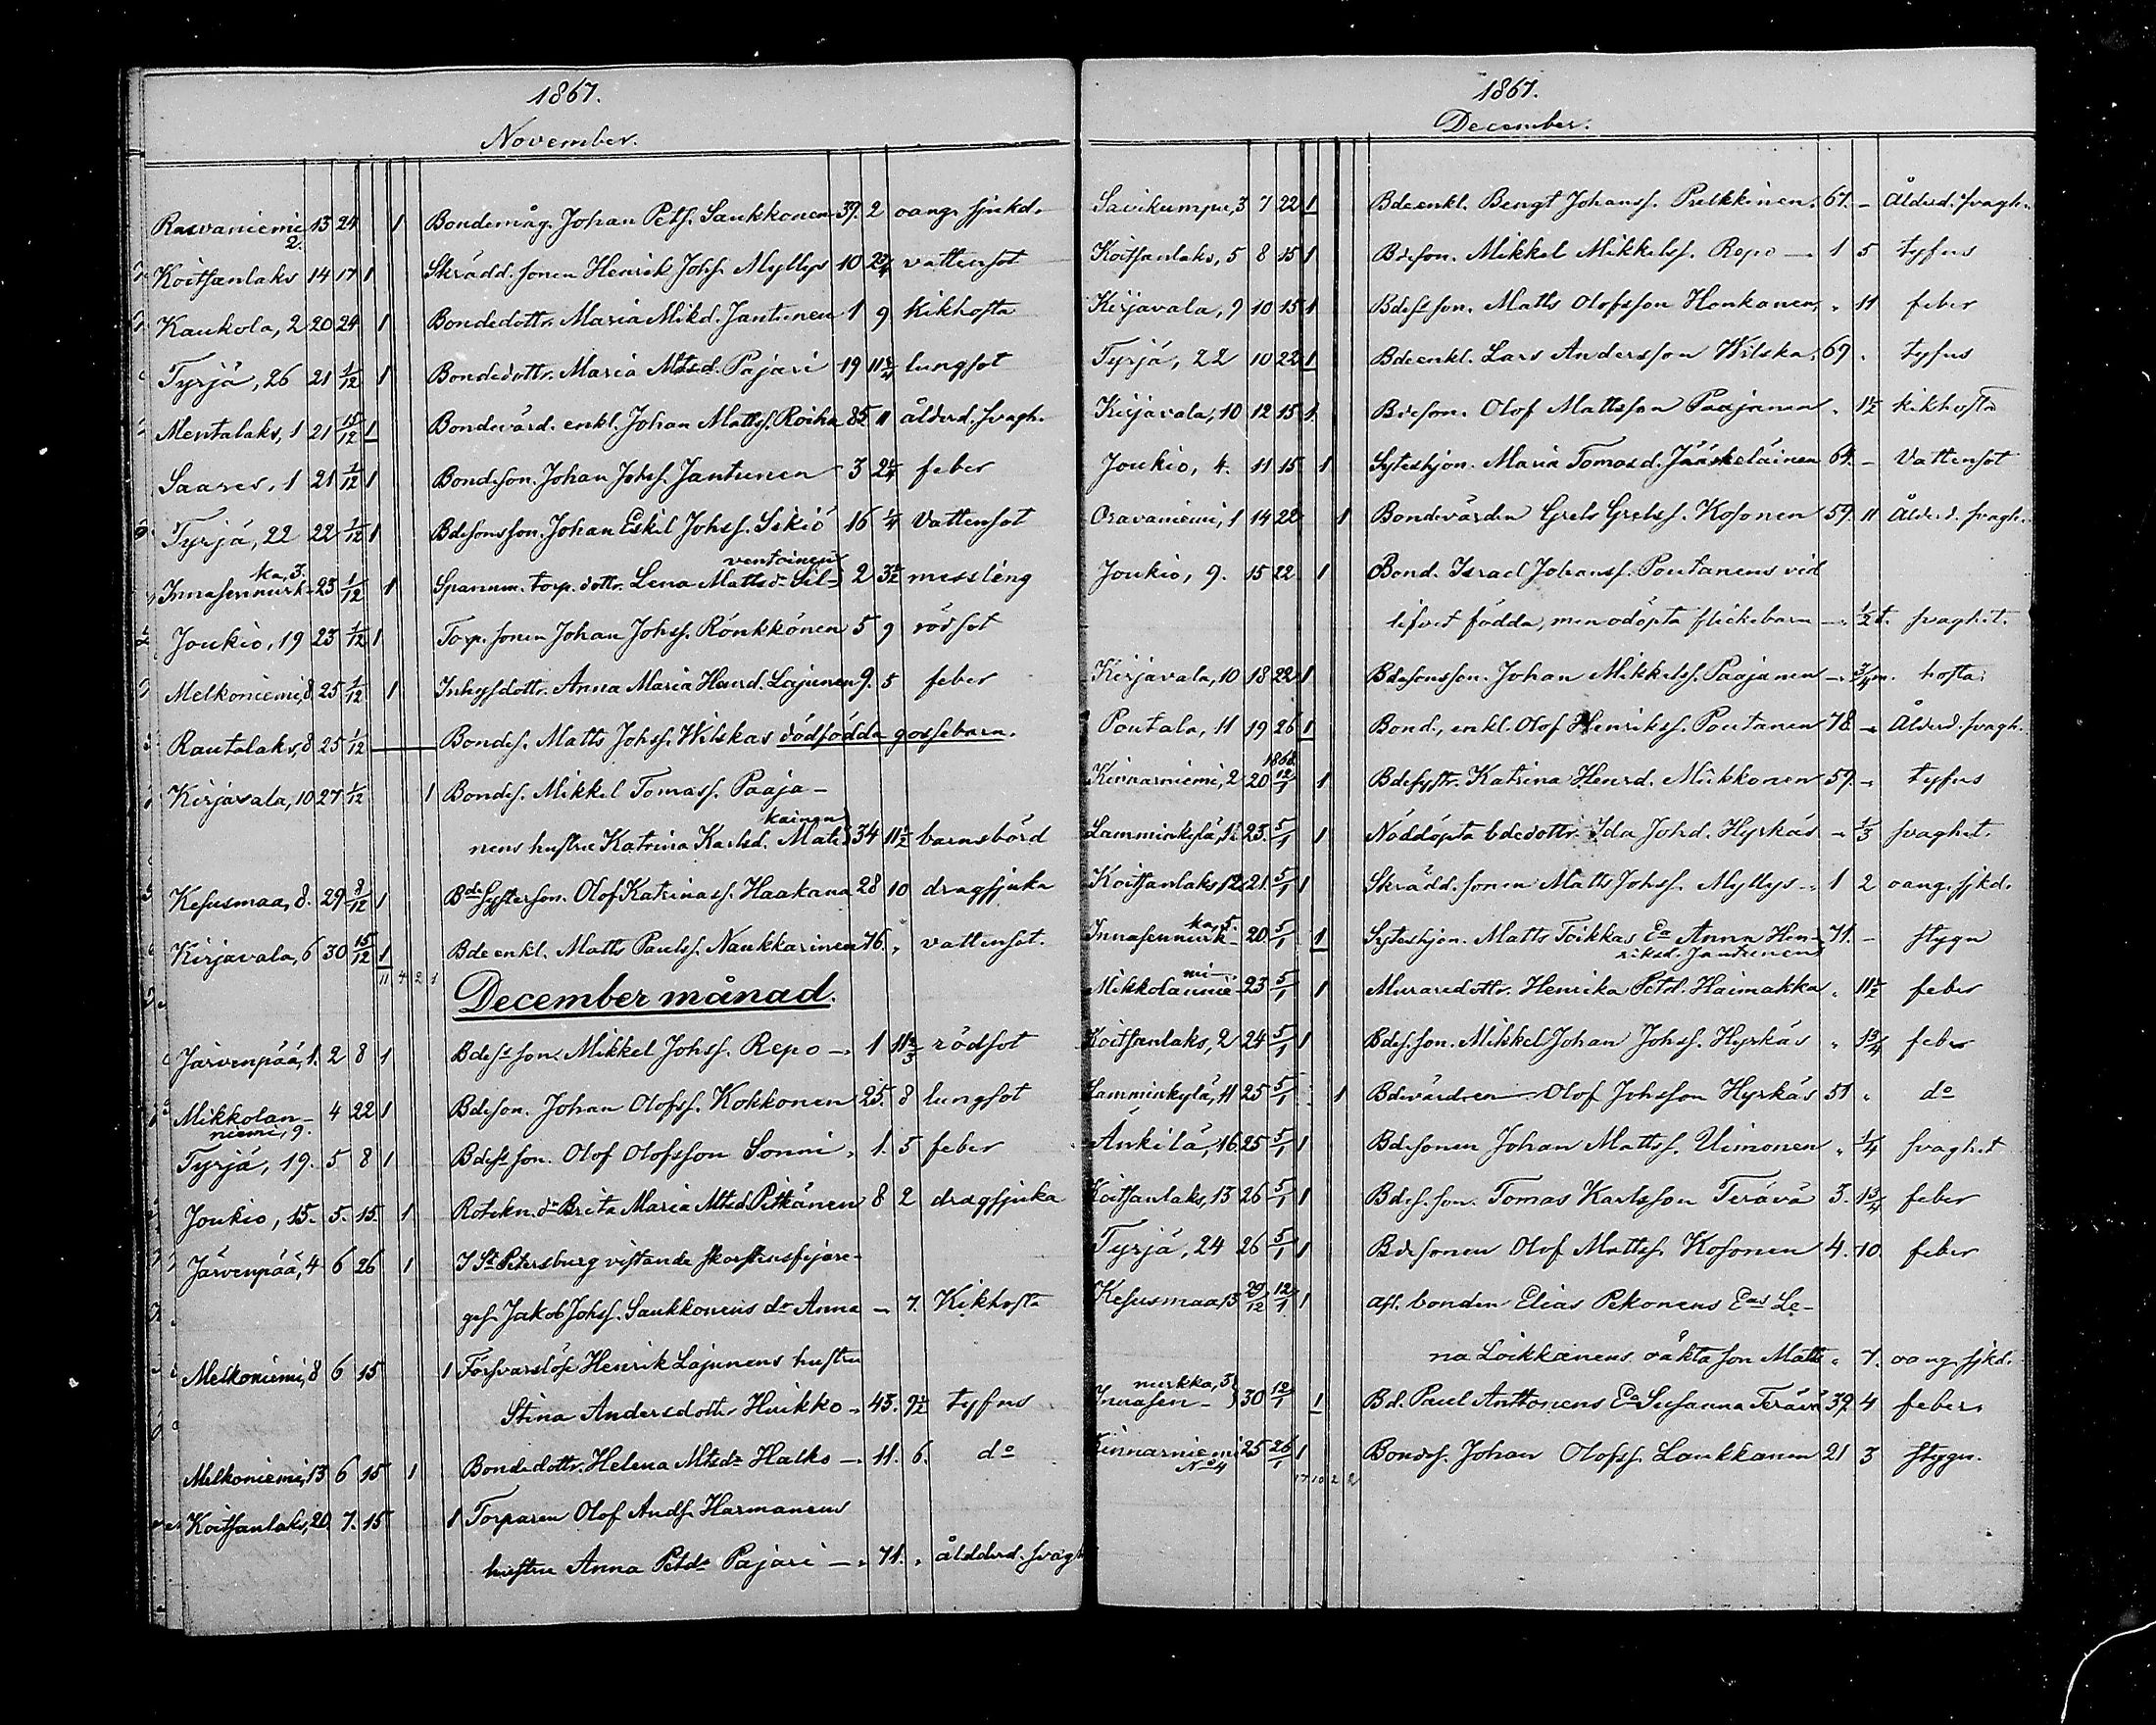 1867.
November.
Rasvaniemi 13 24 1 Bondemåg. Johan Petsf. Saukkonen 39. 2 oang. sjukd.
2.
Koitsanlaks 14 17 1 Skrädd. sonen Henrik Johsf. Myllys 10 2¼ vattensot
Kaukola, 2 20 24 1 Bondedottr. Maria Mikd. Jantunen 1 9 Kikhosta
Tyrjä, 26 21 1/12 1 Bondedottr. Maria Mtsd. Pajari 19 11¾ lungsot
Mentalaks, 1 21 15/12 1 Bondevärd. enkl. Johan Mattsf. Roiha 85 11 ålderd. svagh.
Saares, 1 21 1/12 1 Bondeson. Johan Johsf. Jantunen 3 2¼ feber
Tyrjä, 22 22 1/12 1 Bdesonsson. Johan Eskil Johsf. Sikiö 16 ¼ Vattensot
ka, 3. ventoinen
Innasennurk- 23 1/12 1 Spannm. torp. dottr. Lena Mattsd. Sil- 2 3½ messling
Joukio, 19 23 1/12 1 Torp. sonen Johan Johsf. Rönkkönen 5 9 rödsot
Melkoniemi, 8 25 1/12 1 Inhysdottr. Anna Maria Henrd. Lajunen 9. 5 feber
Rautalaks, 8 25 1/12 Bondes. Matts Johsf. Wilskas dödfödda gossebarn.
Kirjavala, 10 27 1/12 1 Bondes. Mikkel Tomasf. Paaja-
kainen
nens hustru Katrina Karlsd. Mati- 34 11½ barnsbörd
Kesusmaa, 8. 29 8/12 1 Bde systerson. Olof Katrinasf. Haakana 28 10 dragsjuka
Kirjavala, 6 30 15/12 1 Bdeenkl. Matts Paulsf. Naukkarinen 76. " vattensot.
11 4 2 1
December månad.
Järvenpää, 1. 2 8 1 Bdes son. Mikkel Johsf. Repo - 1 11⅔ rödsot
Mikkolan- 4 22 1 Bdeson. Johan Olofsf. Kokkonen 25. 8 lungsot
niemi, 9.
Tyrjä, 19. 5. 8 1 Bdes son. Olof Olofsson Sonni " 1. 5 feber
Joukio, 15. 5. 15. 1 Rotekn. dr Brita Maria Mtsd. Pitkänen 8 2 dragsjuka
Järvenpää, 4 6 26 1 I St Petersburg vistande skorstensfejare-
ges. Jakob Johsf. Saukkonens dr Anna - 7. Kikhosta
Melkoniemi, 8 6 15 1 Försvarslöse Henrik Lajunens hustru
Stina Andersdottr Huikko - 43. 9½ tyfus
Melkoniemi, 13 6 15 1 Bondedottr. Helena Mtsdr Halko - 11. 6. do
Koitsanlaks, 20 7. 15 1 Torparen Olof Andsf. Harmanens
hustru Anna Petdr Pajari - 71. " ålderd. svagh
1867.
December.
Savikumpu, 3 7 22 1 Bdeenkl. Bengt Johansf. Pulkkinen. 67. - Ålderd. svagh.
Koitsanlaks, 5 8 15 1 Bdeson. Mikkel Mikkelsf. Repo - 1 5 tyfus
Kirjavala, 9 10 15 1 Bdes son. Matts Olofsson Honkanen, " 11 feber
Tyrjä, 22 10 22 1 Bdeenkl. Lars Andersson Wilska. 69. tyfus
Kirjavala, 10 12 15 1 Bdeson. Olof Mattsson Paajanen " 1½ kikhosta
Joukio, 4. 11 15 1 Syteshjon. Maria Tomasd. Jääskeläinen 64. - Vattensot
Oravaniemi, 1 14 22 1 Bondevärden Grels Grelsf. Kosonen 59. 11 Ålderd. svagh.
Joukio, 9. 15 22 1 Bond. Israel Johansf. Poutanens vid
lifvet födda, men odöpta flickebarn - ½ t. svaghet.
Kirjavala, 10 18 22 1 Bdesonsson. Johan Mikkelsf. Paajanen - ¾ m. hosta
Poutala, 11 19 26 1 Bond., enkl. Olof Henriksf. Poutanen 78. - Ålderd. svagh.
1868
Kinnarniemi, 2 20 12/1 1 Bdesystr. Katrina Henrd. Miikkonen 59. - tyfus
Lamminkylä, 23. 5/1 1 Nöddöpta bdedottr. Ida Johd. Hyrkäs - ⅓ svaghet.
Koitsanlaks, 12 21. 5/1 1 Skrädd. sonen Matts Johsf. Myllys - 1 2 oang. sjkd.
ka, 5.
Innasennurk- 20 5/1 1 Sytesshjon. Matts Toikkas Ea Anna Hen- 71. - stygn
riksd. Jantunen
mi-
Mikkolannie- 23 5/1 1 Muraredottr. Henrika Petd. Haimakka " 11½ feber
Koitsanlaks, 2 24 5/1 1 Bdes. son. Mikkel Johan Johsf. Hyrkäs " 1¾ feber
Lamminkylä, 11 25 5/1 1 Bdevärden Olof Johsson Hyrkäs 51 " do
Änkilä, 16. 25 5/1 1 Bdesonen Johan Mattsf. Uimonen " ¼ svaghet
Koitsanlaks, 13 26 5/1 1 Bdes. son. Tomas Karlsson Terävä 3. 1¾ feber
Tyrjä, 24 26 5/1 1 Bdesonen Olof Mattsf. Kosonen 4. 10 feber
Kesusmaa, 13 29/12 12/1 1 afl. bonden Elias Pekonens Eas Le-
na Loikkanens oäkta son Matts " 7. oang. sjkd.
nurkka, 3
Innasen- 30 12/1 1 Bd. Paul Anttonens Ea Susanna Terävä 39. 4 feber.
Kinnarniemi 25 26/1 1 Bondes. Johan Olofsf. Laukkanen 21 3 stygn.
No 4
17 10 2 2